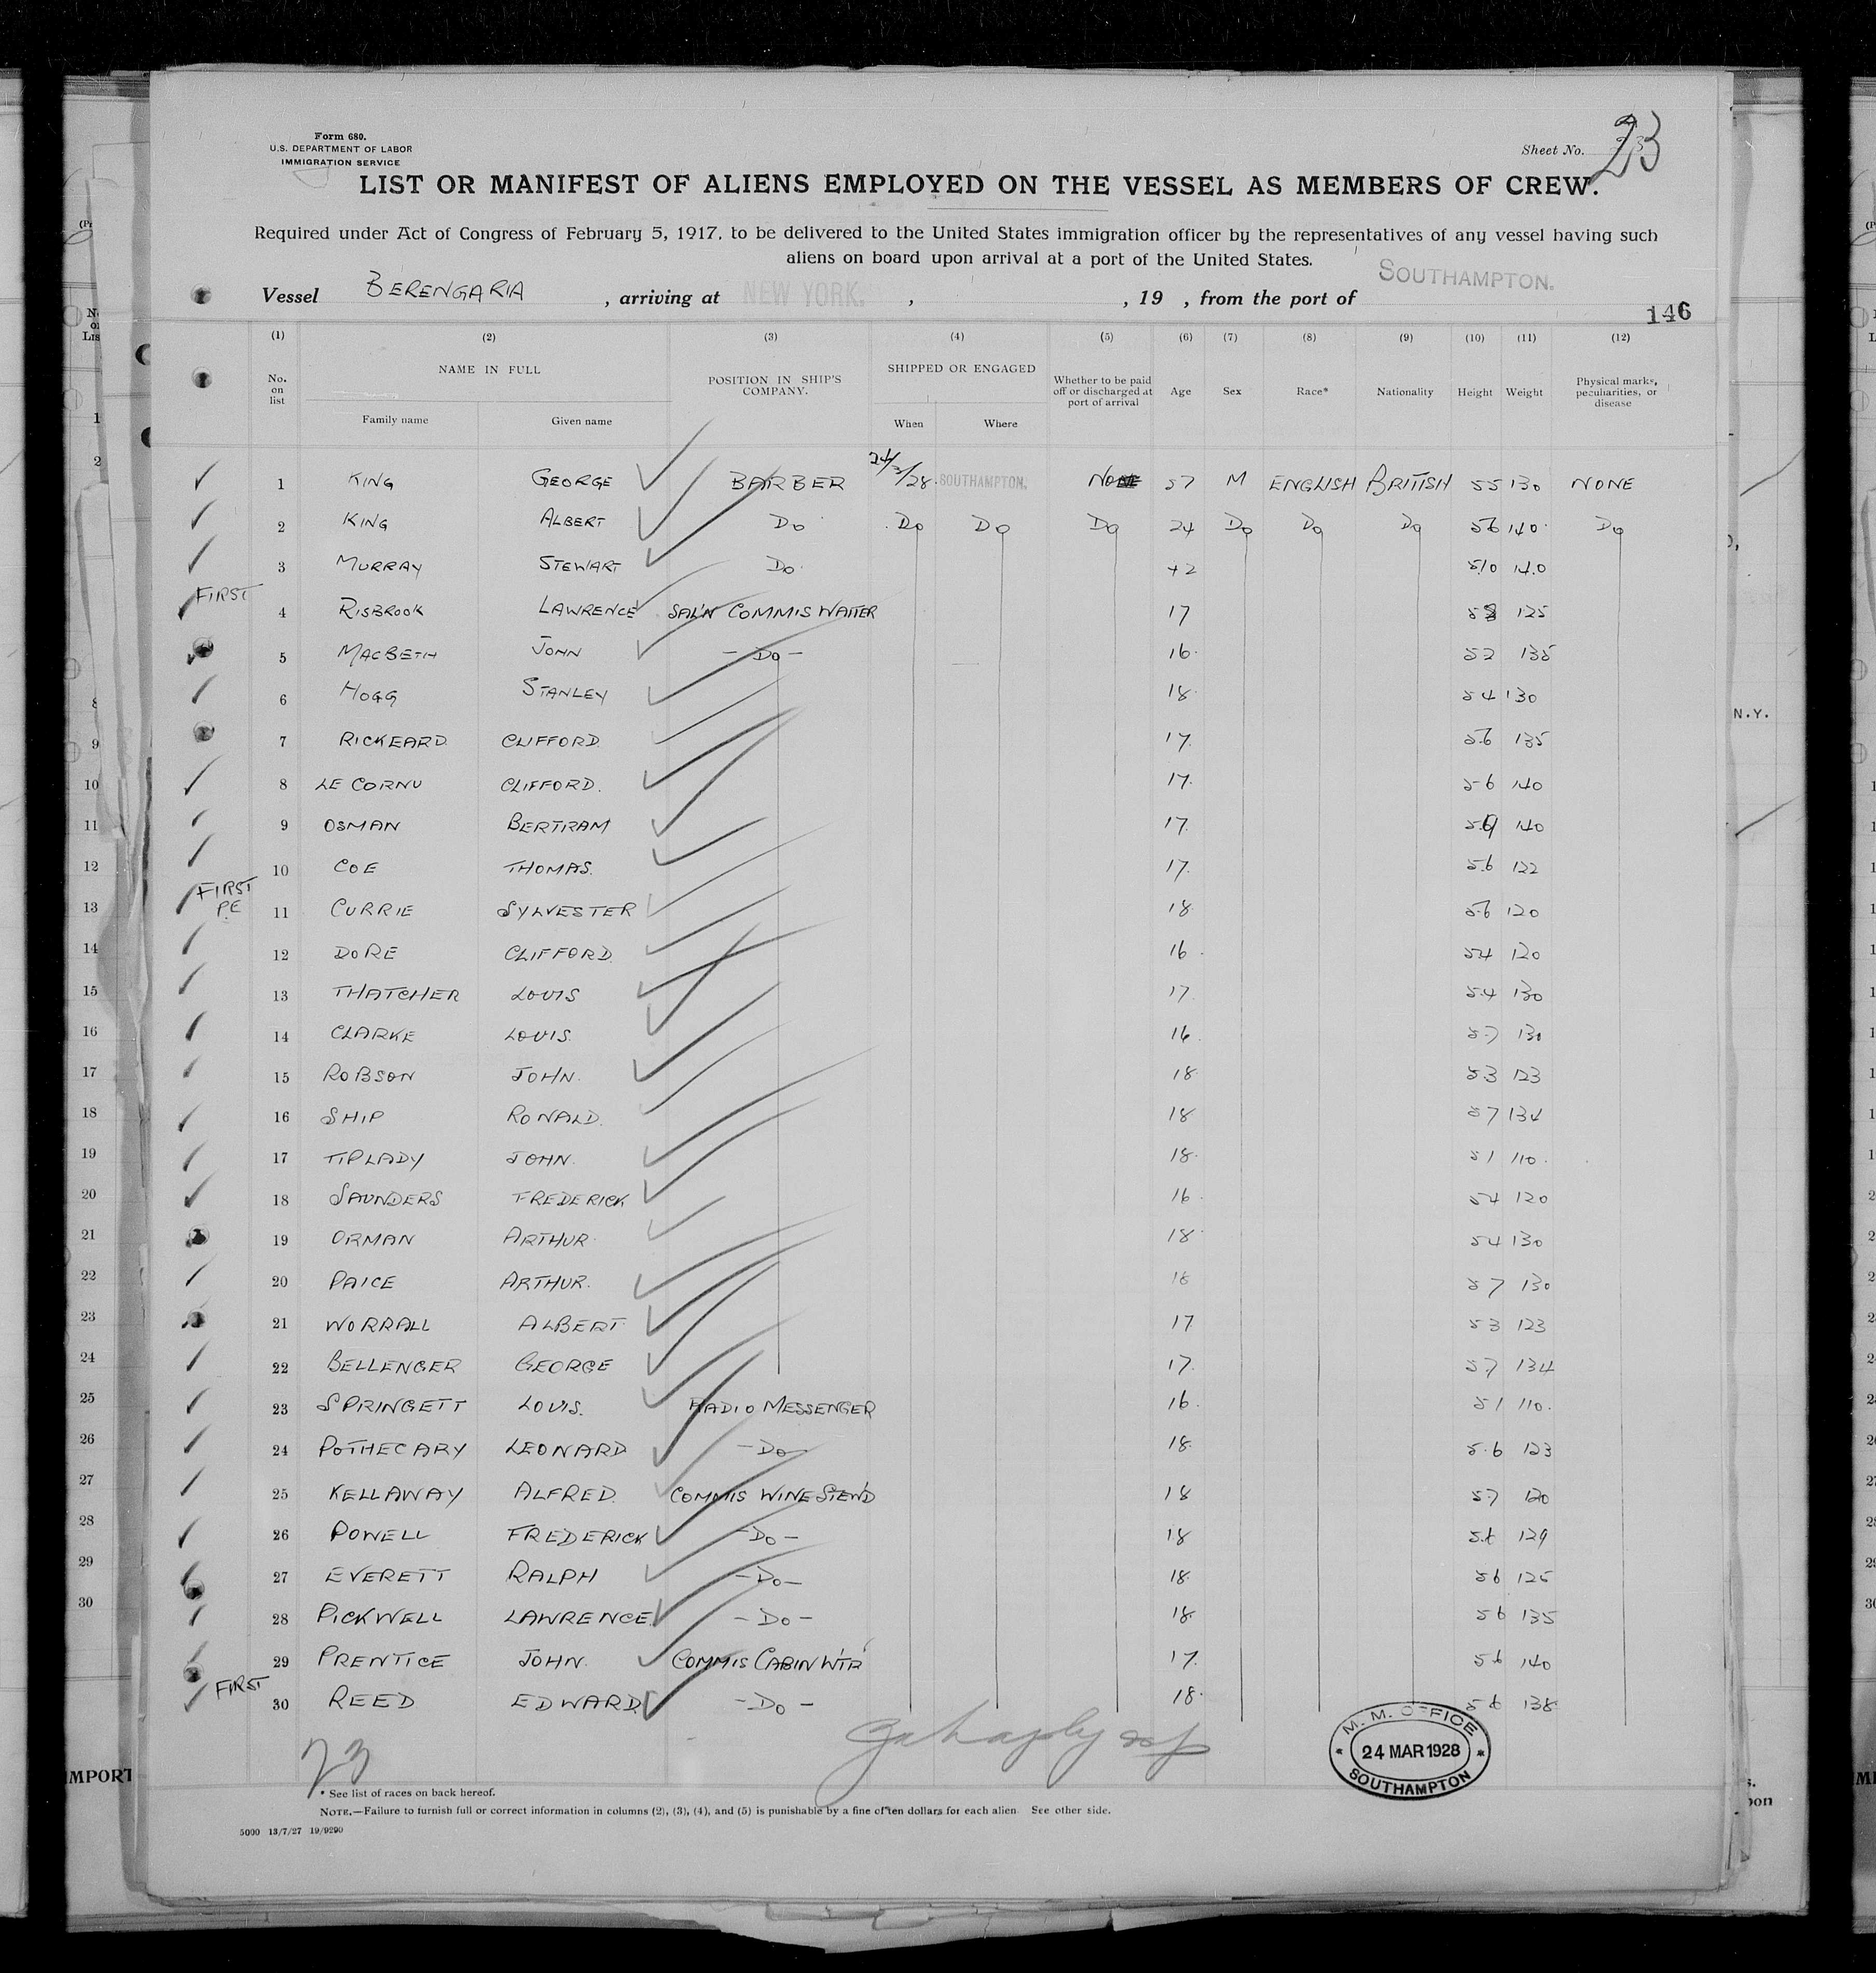 Form 680.
U.S. DEPARTMENT OF LABOR
IMMIGRATION SERVICE
Sheet No. 23
LIST OR MANIFEST OF ALIENS EMPLOYED ON THE VESSEL AS MEMBERS OF CREW.
Required under Act of Congress of February 5, 1917, to be delivered to the United States immigration officer by the representatives of any vessel having such
aliens on board upon arrival at a port of the United States.
Vessel BERENGARIA , arriving at NEW YORK. , , 19 , from the port of SOUTHAMPTON.
146
(1) (2) (3) (4) (5) (6) (7) (8) (9) (10) (11) (12)
No. on list NAME IN FULL POSITION IN SHIP'S COMPANY. SHIPPED OR ENGAGED Whether to be paid off or discharged at port of arrival Age Sex Race* Nationality Height Weight Physical marks, peculiarities, or disease
Family name Given name When Where
1 KING GEORGE BARBER 24/3/28 SOUTHAMPTON. NO 57 M ENGLISH BRITISH 55 130 NONE
2 KING ALBERT Do Do Do Do 24 Do Do Do 56 140 Do
3 MURRAY STEWART Do 42 510 140
FIRST
4 RISBROOK LAWRENCE SAL'N COMMIS WAITER 17 125
5 MACBETH JOHN - Do - 16 52 135
6 HOGG STANLEY 18 54 130
7 RICKEARD CLIFFORD 17 56 135
8 LE CORNU CLIFFORD. 17. 56 140
9 OSMAN BERTRAM 17. 140
10 COE THOMAS. 17. 56 122
FIRST
PE
11 CURRIE SYLVESTER 18 56 120
12 DORE CLIFFORD 16. 54 120
13 THATCHER LOUIS 17. 54 130
14 CLARKE LOUIS. 16. 57 130
15 ROBSON JOHN. 18 53 123
16 SHIP RONALD. 18 57 134
17 TIPLADY JOHN. 18. 51 110.
18 SAUNDERS FREDERICK 16. 54 120
19 ORMAN ARTHUR 18 54 130
20 PAICE ARTHUR. 18 57 130
21 WORRALL ALBERT 17 53 123
22 BELLENGER GEORGE 17. 57 134
23 SPRINGETT LOUIS. RADIO MESSENGER 16. 51 110.
24 POTHECARY LEONARD - Do - 18. 56 123
25 KELLAWAY ALFRED. COMMIS WINE STEWD 18 57 120
26 POWELL FREDERICK - Do - 18 129
27 EVERETT RALPH - Do - 18. 56 125
28 PICKWELL LAWRENCE - Do - 18. 56 135
29 PRENTICE JOHN. COMMIS CABIN WTR 17. 56 140
FIRST
30 REED EDWARD. - Do - 18. 56 138
M. M. OFFICE
24 MAR 1928
SOUTHAMPTON
* See list of races on back hereof.
NOTE.—Failure to furnish full or correct information in columns (2), (3), (4), and (5) is punishable by a fine of ten dollars for each alien. See other side.
5000 13/7/27 19/9290